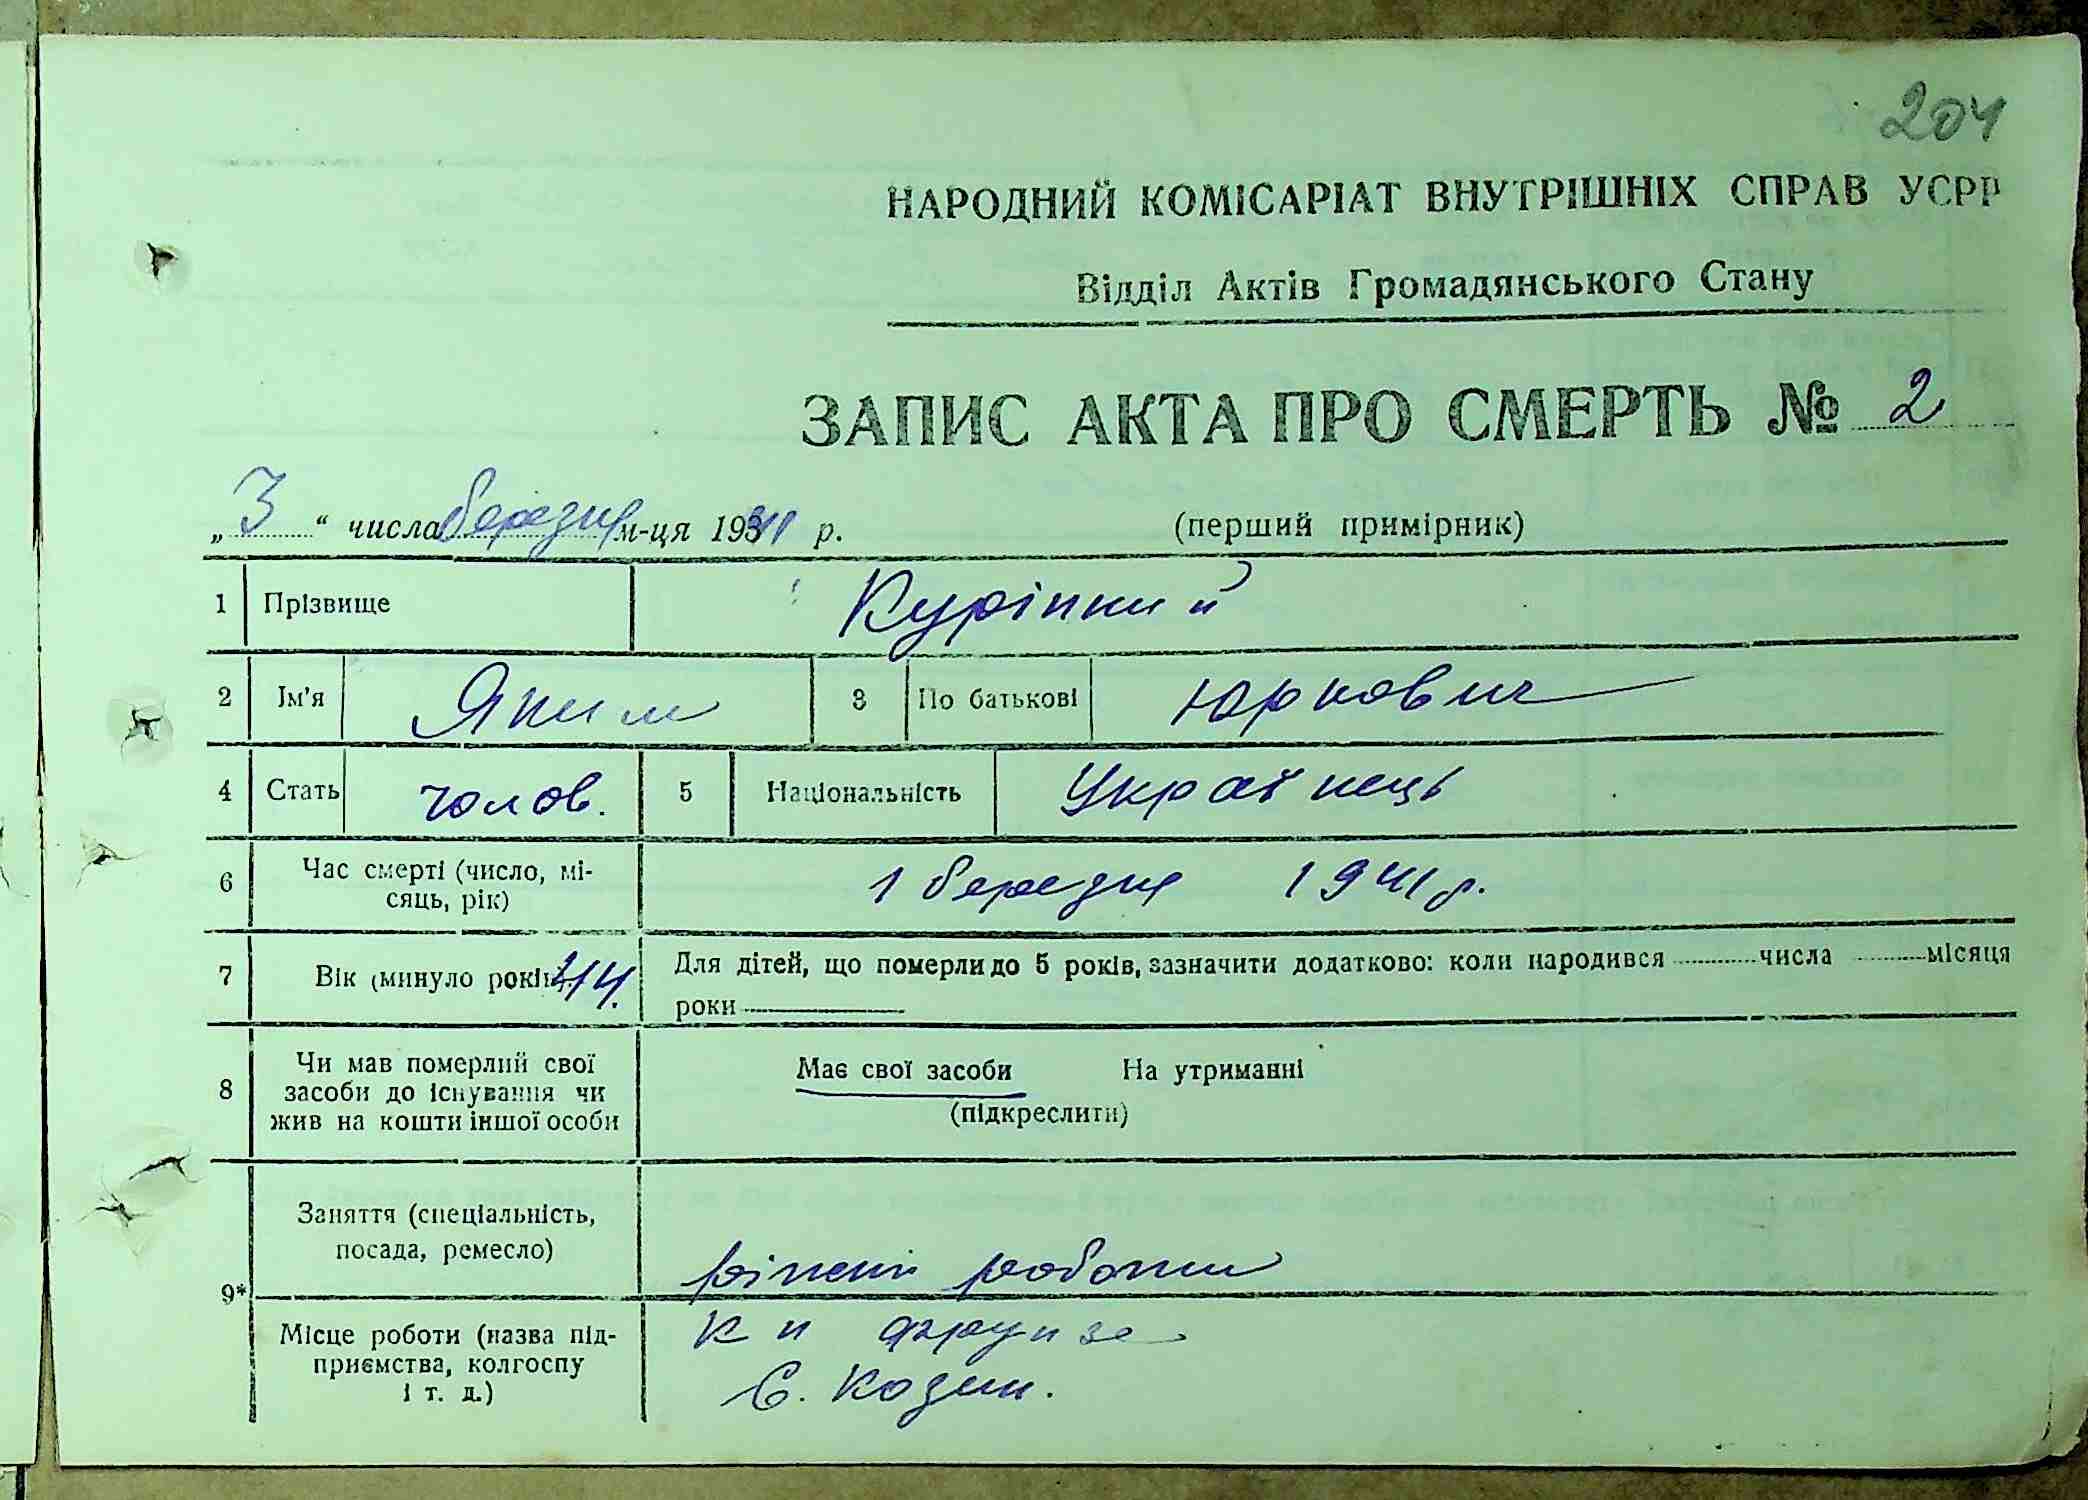 204
НАРОДНИЙ КОМІСАРІАТ ВНУТРІШНІХ СПРАВ УСРР
Відділ Актів Громадянського Стану
ЗАПИС АКТА ПРО СМЕРТЬ № 2
„ 3 “ числа березня м-ця 1941 р. (перший примірник)
1 Прізвище Куріпний
2 Ім'я Яким 3 По батькові Юркович
4 Стать чолов. 5 Національність Українець
6 Час смерті (число, мі-
сяць, рік) 1 березня 1941 р.
7 Вік (минуло років) 44. Для дітей, що померли до 5 років, зазначити додатково: коли народився числа місяця
роки
8 Чи мав померлий свої
засоби до існування чи
жив на кошти іншої особи
Має свої засоби На утриманні
(підкреслити)
9* Заняття (спеціальність,
посада, ремесло) різні роботи
Місце роботи (назва під-
приємства, колгоспу
і т. д.)
к п фрунзе
С. Козин.